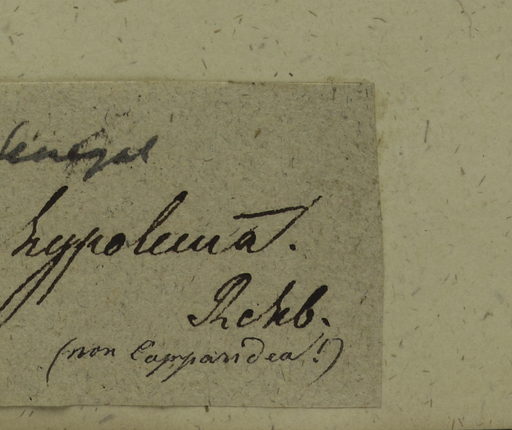 Senegal
hypoleuca.
Rchb.
(non Capparidea!)